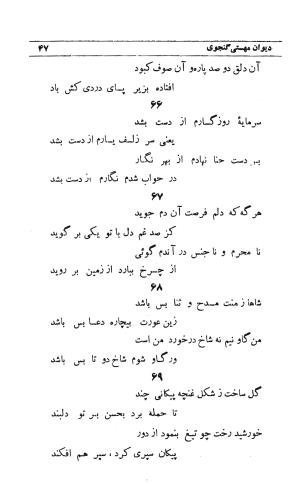 دیوان مهستی گنجوی ۴۷
آن دلق دو صد پاره و آن صوف کبود
افتاده بزیر پای دردی کش باد
۶۶
سرمایهٔ روزگارم از دست بشد
یعنی سر زلف یارم از دست بشد
بر دست حنا نهادم از بهر نگار
در خواب شدم نگارم از دست بشد
۶۷
هر گه که دلم فرصت آن دم جوید
کز صد غم دل با تو یکی بر گوید
نا محرم و ناجنس در آندم گوئی
از چرخ ببارد از زمین بر روید
۶۸
شاها ز منت مدح و ثنا بس باشد
زین عورت بیچاره دعا بس باشد
من گاو نیم نه شاخ درخورد من است
ور گاو شوم شاخ دو تا بس باشد
۶۹
گل ساخت ز شکل غنچه پیکانی چند
تا حمله برد بحسن بر تو دلبند
خورشید رخت چو تیغ بنمود از دور
پیکان سپری کرد، سپر هم افکند